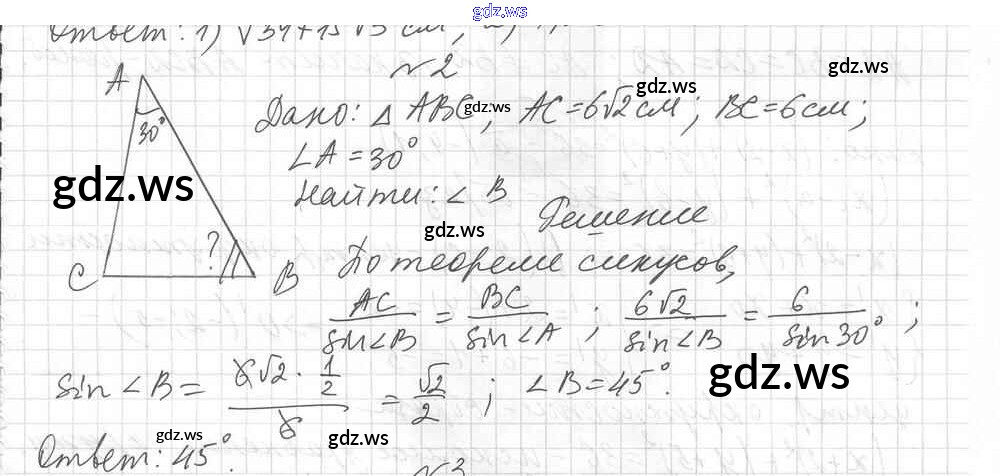 gdz.ws
Ответ: 1) √34+15√3 см;
№2
gdz.ws
A
30°
Дано: △ ABC, gdz.ws AC=6√2 см; BC=6 см;
∠A=30°
gdz.ws
Найти: ∠B
gdz.ws
Решение
C ? B
По теореме синусов,
AC/sin∠B = BC/sin∠A ; 6√2/sin∠B = 6/sin30° ;
sin∠B = (6√2 · 1/2)/6 = √2/2 ; ∠B=45°.
gdz.ws
gdz.ws
gdz.ws
Ответ: 45°.
№3